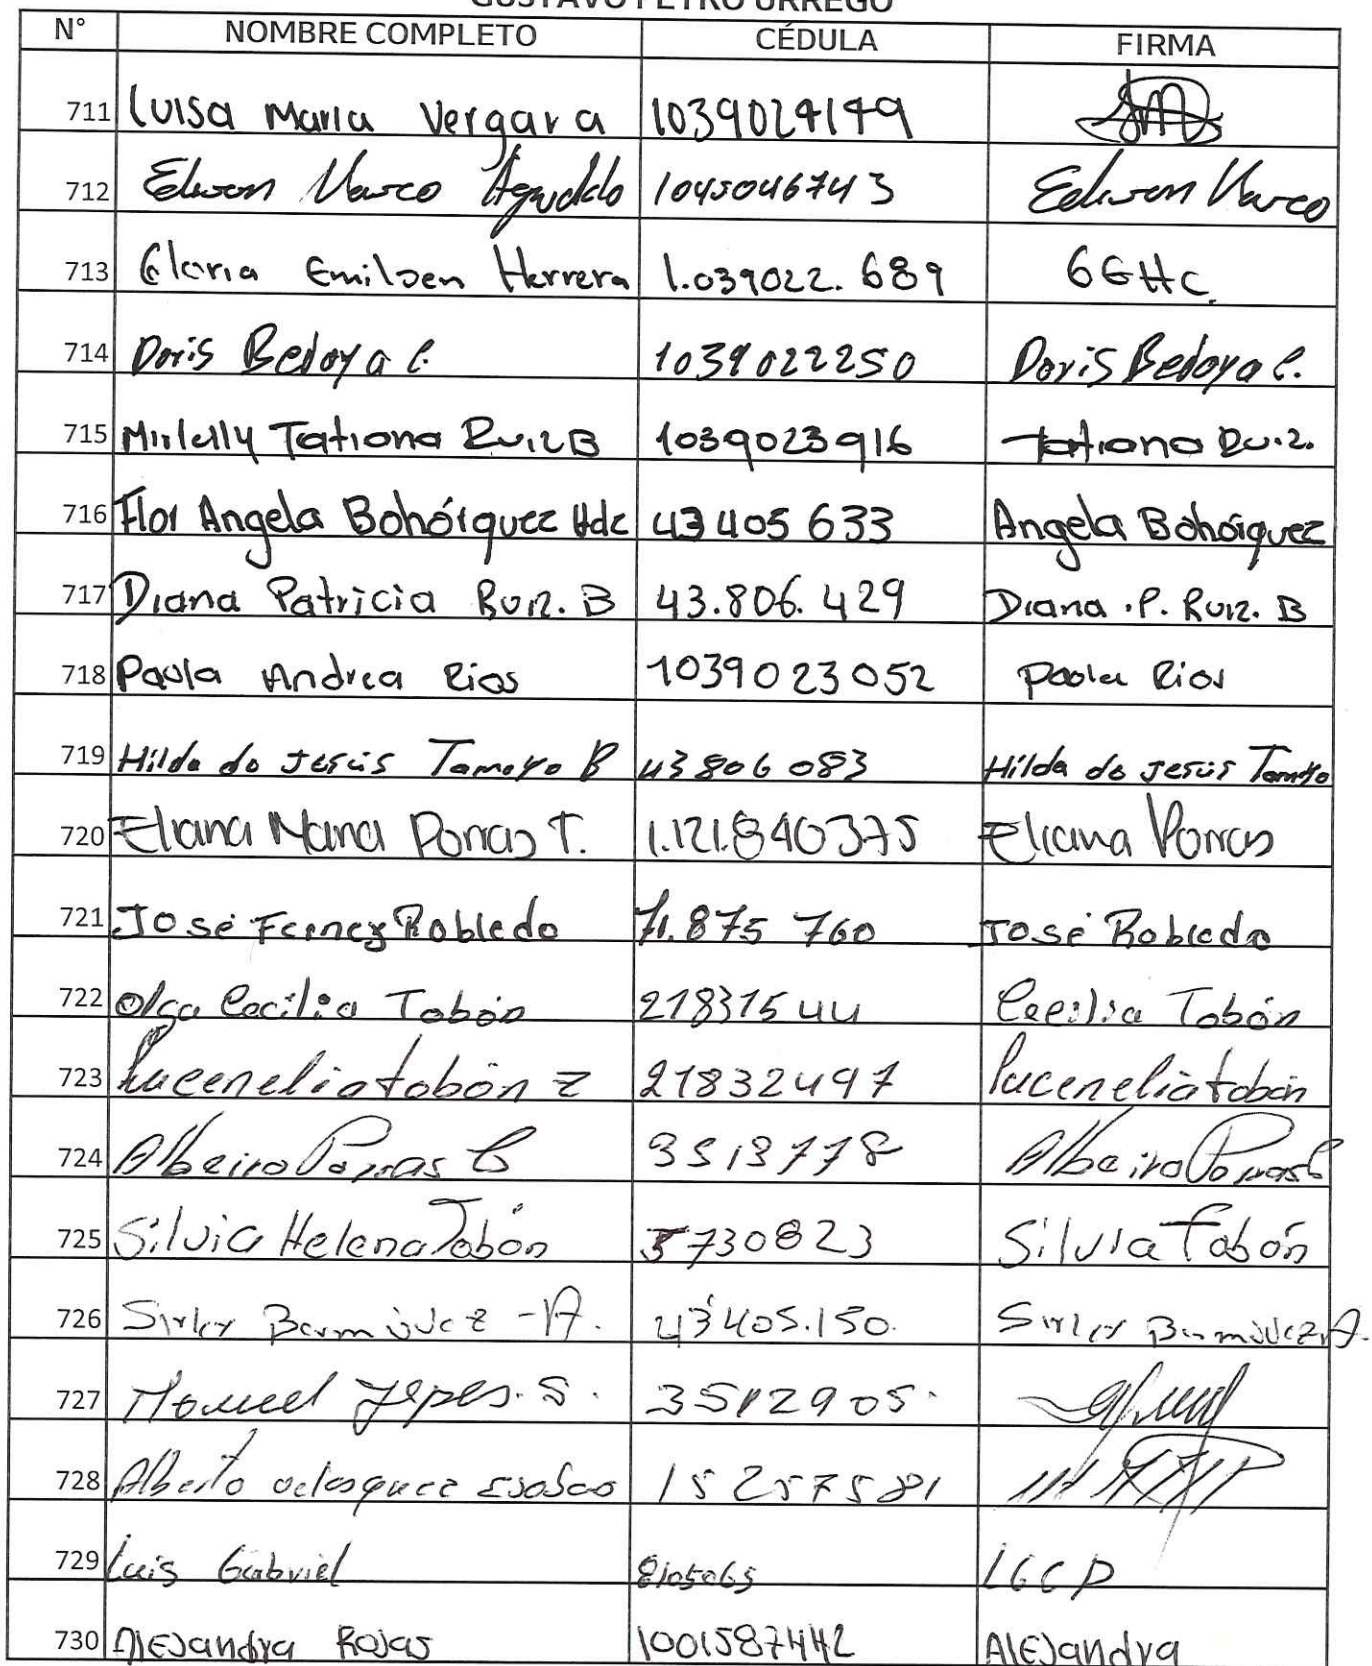 GUSTAVO PETRO URREGO
N° NOMBRE COMPLETO CÉDULA FIRMA
711 Luisa Maria Vergara 1039024149
712 Edwon Marco Agudelo 1045046743 Edwon Marco
713 Gloria Emilsen Herrera 1.039022.689 GEHC.
714 Doris Bedoya C. 1039022250 Doris Bedoya C.
715 Mirlelly Tatiana Ruiz B 1039023916 Tatiana Ruiz.
716 Flor Angela Bohórquez Hdz 43405633 Angela Bohórquez
717 Diana Patricia Ruiz. B 43.806.429 Diana .P. Ruiz. B
718 Paola Andrea Rios 1039023052 Paola Rios
719 Hilda de Jesús Tamayo B 43806083 Hilda de Jesús Tamayo
720 Eliana Maria Porras T. 1.121.840375 Eliana Porras
721 José Ferney Robledo 71.875 760 José Robledo
722 Olga Cecilia Tobón 21831544 Cecilia Tobón
723 Lucenelia tobón z 21832497 Lucenelia tobón
724 Albeiro Porras C 3513778 Albeiro Porras C
725 Silvia Helena Tobón 5730823 Silvia Tobón
726 Sirley Bermúdez -A. 43405.150. Sirley Bermúdez A.
727 Manuel Yepes. S. 3512905.
728 Alberto velasquez 15257581
729 Luis Gabriel 8105065 LGCP
730 Alejandra Rojas 1001587442 Alejandra